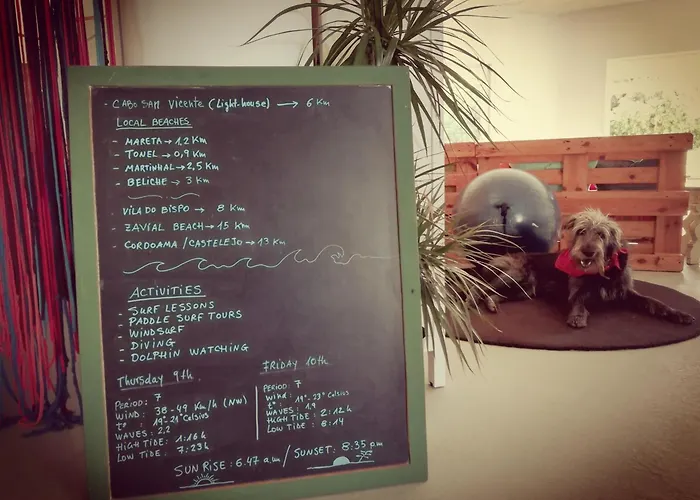 - CABO SAN VICENTE (Light-house) → 6 Km
LOCAL BEACHES
- MARETA → 1,2 Km
- TONEL → 0,9 Km
- MARTINHAL → 2,5 Km
- BELICHE → 3 Km
VILA DO BISPO → 8 Km
- ZAVIAL BEACH → 15 Km
- CORDOAMA / CASTELEJO → 13 Km
ACTIVITIES
- SURF LESSONS
- PADDLE SURF TOURS
- WINDSURF
- DIVING
- DOLPHIN WATCHING
Thursday 9th
PERIOD: 7
WIND: 38-49 Km/h (NW)
t°: 19°-21° Celsius
WAVES: 2.2
HIGH TIDE: 1:16 h
LOW TIDE: 7:23 h
FRIDAY 10th
PERIOD: 7
Wind:
t° 19°-23° Celsius
WAVES: 1.9
HIGH TIDE: 2:12 h
LOW TIDE: 8:14
SUN RISE: 6:47 a.m / SUNSET: 8:35 pm